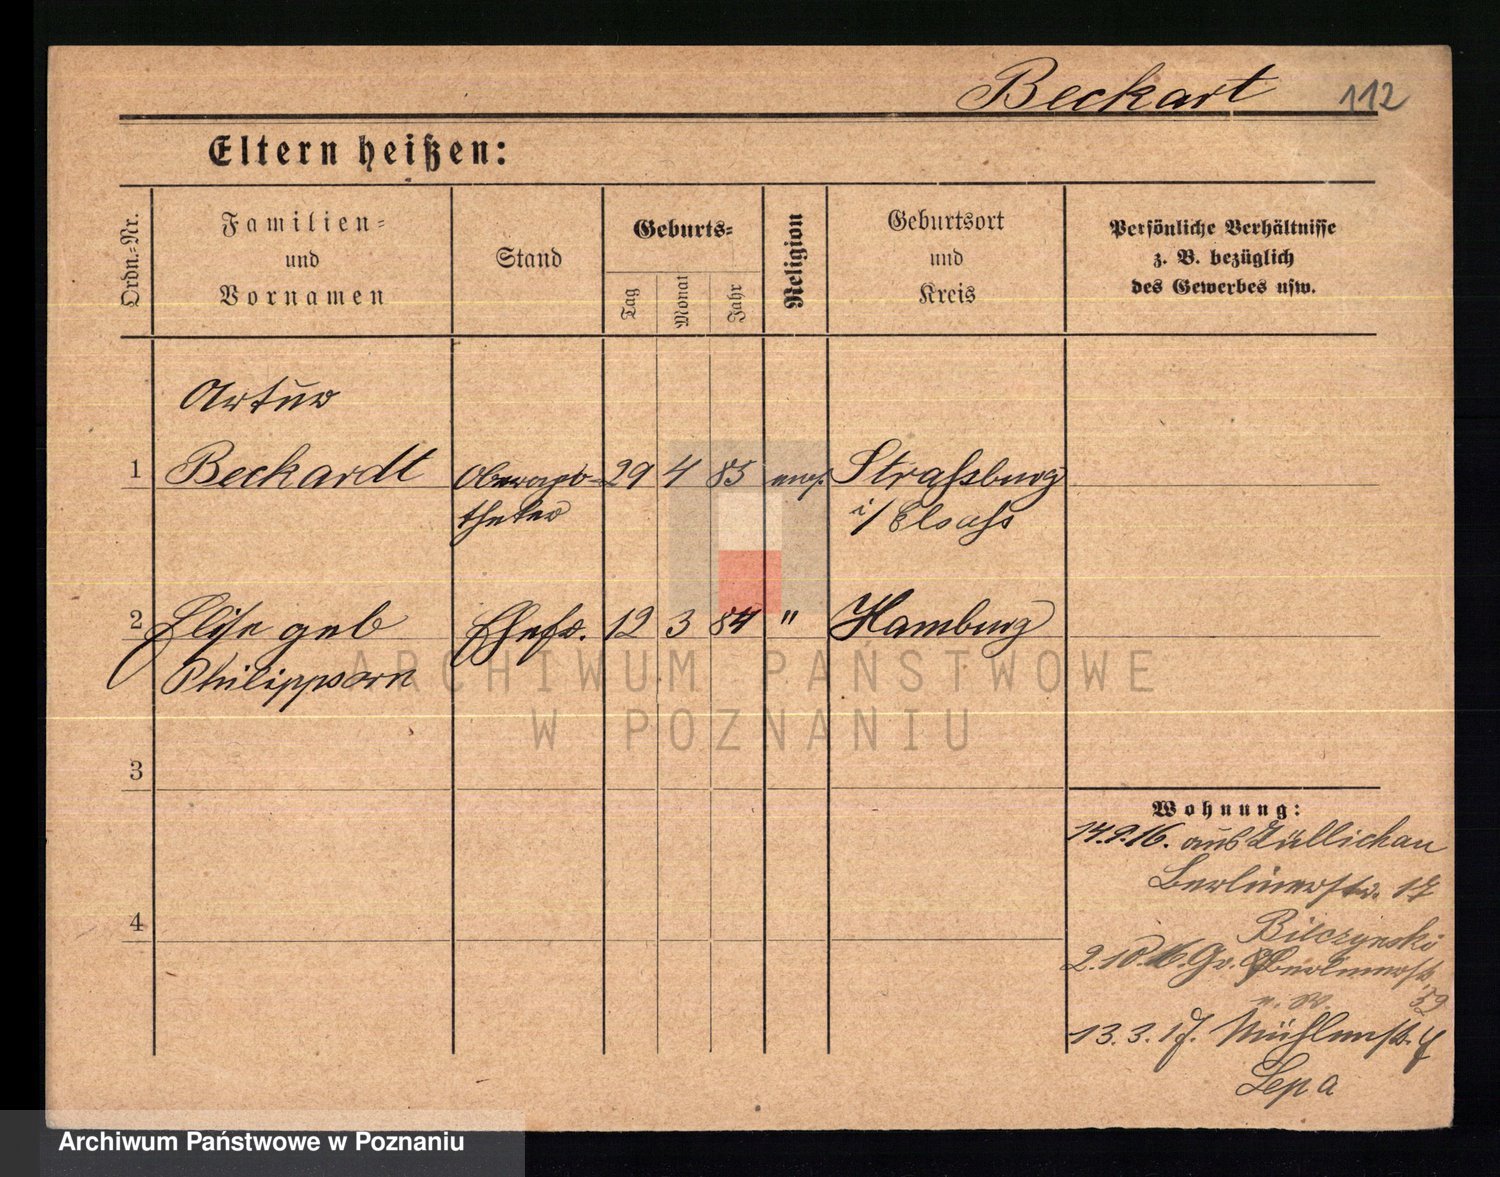 Beckart 112
Eltern heißen:
Ordn.-Nr.
Familien-
und
Vornamen
Stand
Geburts-
Tag
Monat
Jahr
Religion
Geburtsort
und
Kreis
Persönliche Verhältnisse
z. B. bezüglich
des Gewerbes usw.
Artur
1 Beckardt Oberapo- 29 4 85 evgl. Straßburg
theker i/ Elsaß
2 Elise geb Ehefr. 12 3 84 " Hamburg
Philippsorn
ARCHIWUM PAŃSTWOWE
W POZNANIU
3
Wohnung:
14.9.16. aus Züllichau
Berlinerstr. 17
4
Bilczynski
2.10.16. Gr. Berlinerstr.
52
13.3.17. Mühlenstr. 4
Lepa
Archiwum Państwowe w Poznaniu